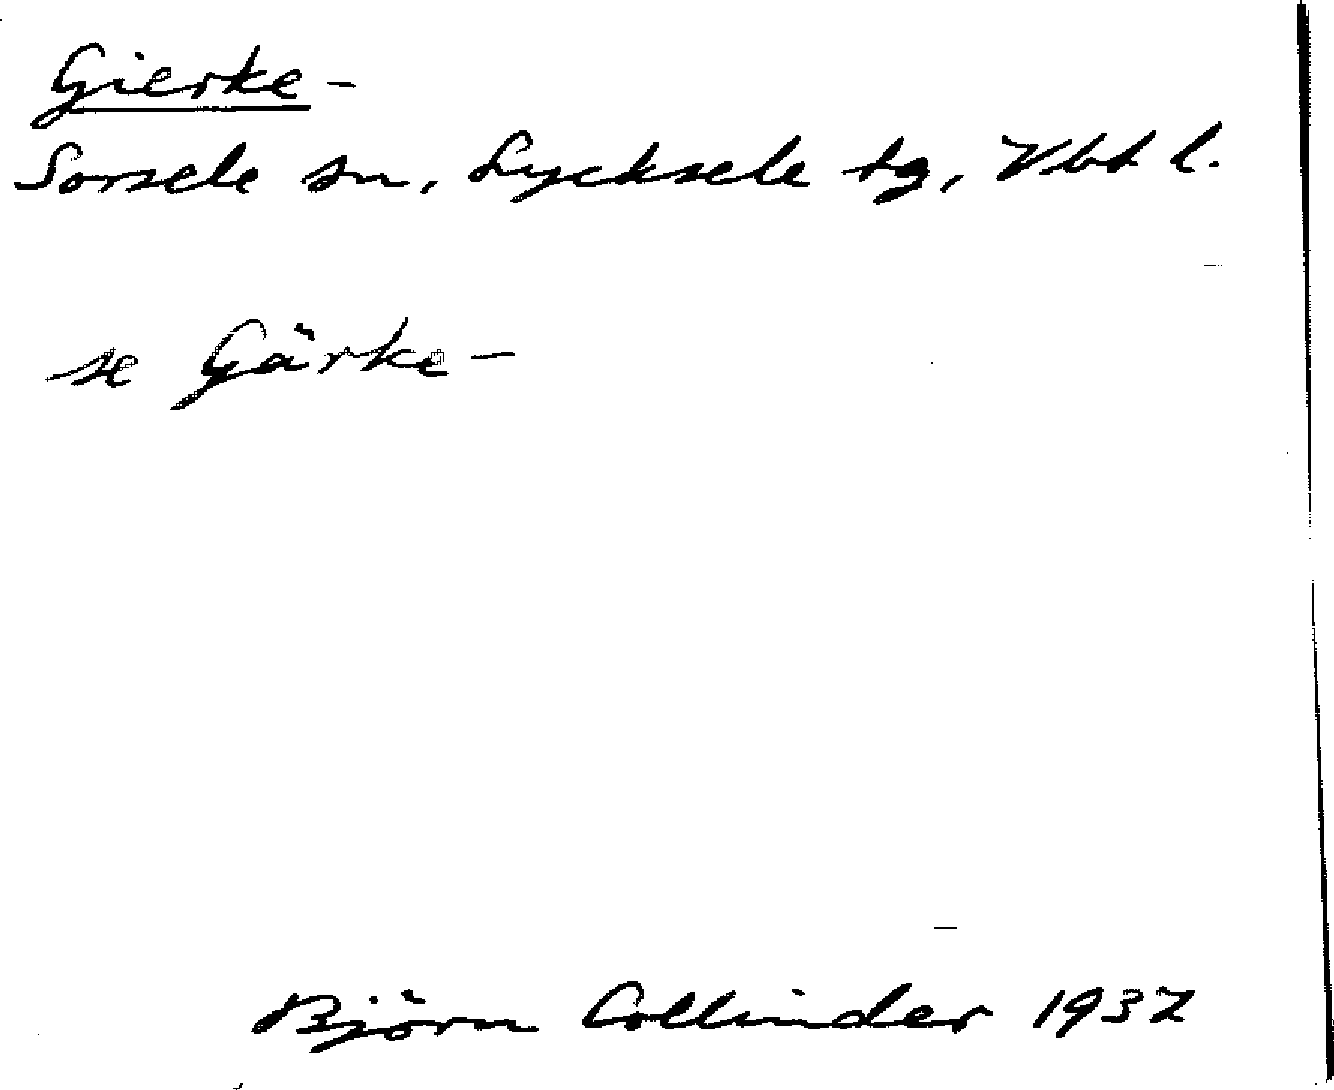 Gierke-
Sorsele sn, Lycksele tg, Vbt l.
se Gärke-
Björn Collinder 1937